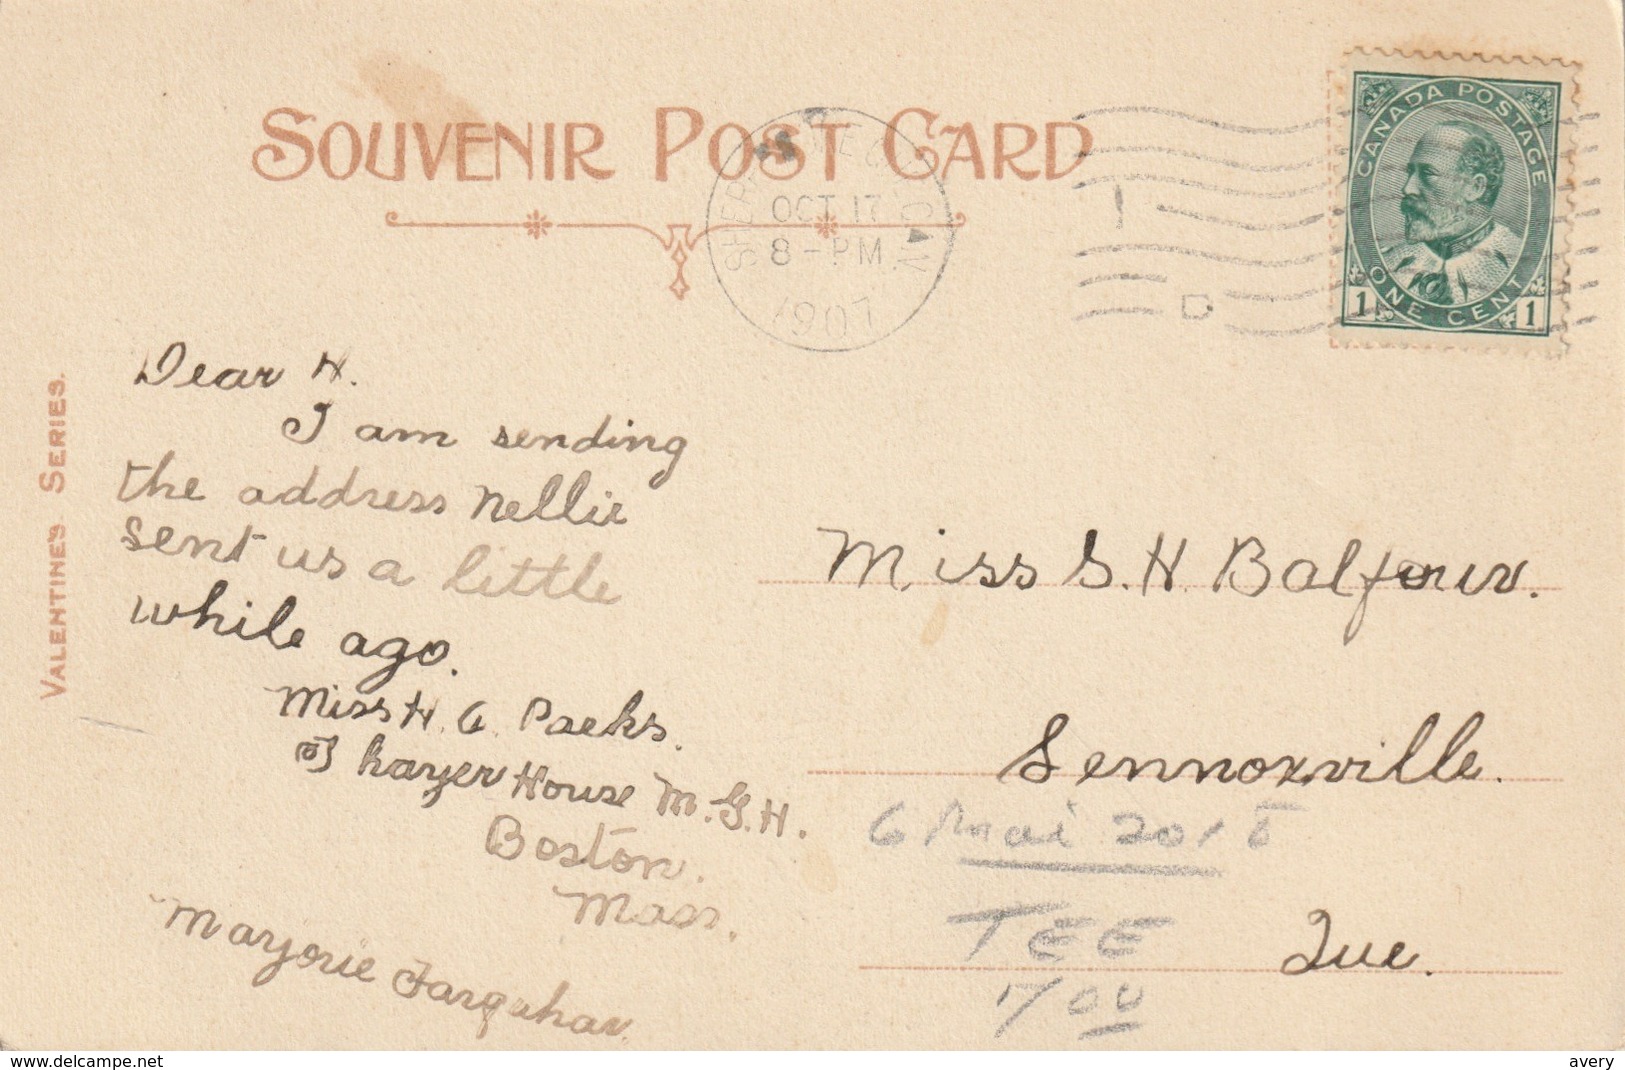 SOUVENIR POST CARD
CANADA POSTAGE
ONE CENT
1 1
OCT 17
8 - PM
1907
VALENTINE'S SERIES.
Dear H.
I am sending
the address Nellie
sent us a little
while ago.
Miss H. G. Parks.
Thayer House M.G.H.
Boston.
Mass.
Marjorie Farquhar.
Miss S. H. Balfour.
Lennoxville.
Que.
6 Mai 2018
TEE
17/00
www.delcampe.net
avery